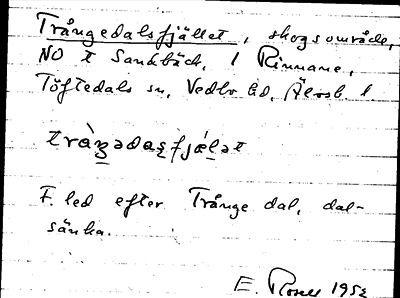 Trångedalsfjället, skogsområde,
NO t Sandbäck, i Rinnane,
Töftedals sn, Vedbo hd, Älvsb. l.
F. led efter Trånge dal, dal-
sänka.
E. 1952